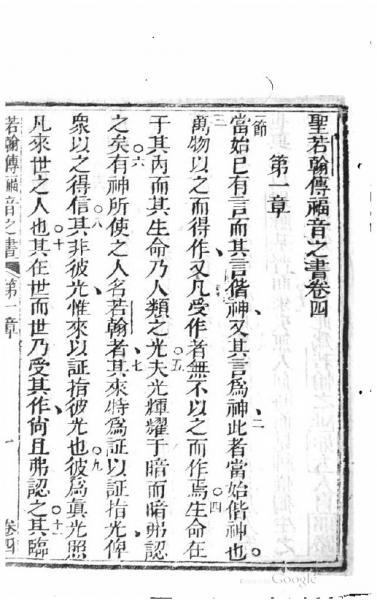 聖若翰傳福音之書卷四
第一章
一節
當始已有言而其言偕神又其言爲神此者當始偕神也
二
三
萬物以之而得作又凡受作者無不以之而作焉生命在
四
于其內而其生命乃人類之光夫光輝耀于暗而暗弗認
五
之矣有神所使之人名若翰者其來特爲証以証指光俾
六
七
衆以之得信其非彼光惟來以証指彼光也彼爲真光照
八
九
凡來世之人也其在世而世乃受其作尙且弗認之其臨
十
十一
若翰傳福音之書
第一章
一
卷四
Google